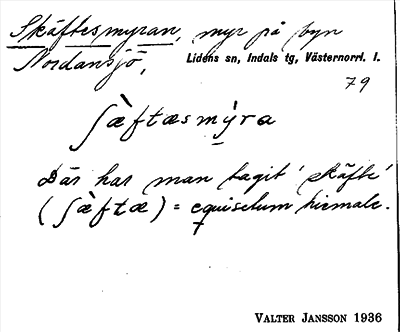 Skäftesmyran, myr på byn
Nordansjö, Lidens sn, Indals tg, Västernorrl. l.
79
ʃæ̀ftæsmýra
Där har man tagit 'skäfte'
(ʃæ̀ftæ) = equisetum hiemale.
VALTER JANSSON 1936